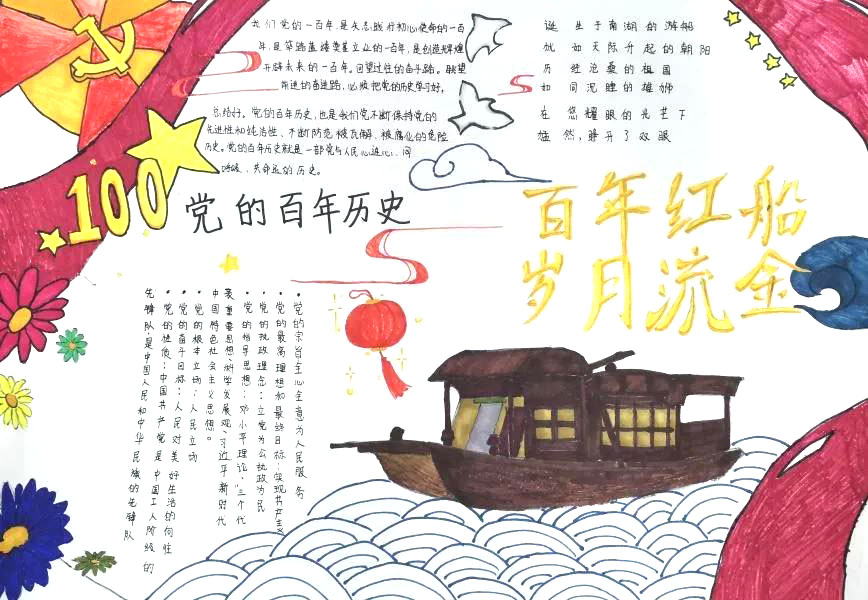 我们党的一百年,是矢志践行初心使命的一百
年,是筚路蓝缕奠基立业的一百年,是创造辉煌
开辟未来的一百年。回望过往的奋斗路。眺望
前进的奋进路,必须把党的历史学习好,
总结好。党的百年历史,也是我们党不断保持党的
先进性和纯洁性、不断防范被瓦解、被腐化的危险
历史。党的百年历史就是一部党与人民心连心、同
呼吸、共命运的历史。
诞生于南湖的游船
就如天际升起的朝阳
历经沧桑的祖国
如同沉睡的雄狮
在您耀眼的光芒下
猛然,睁开了双眼
100
党的百年历史
百年红船
岁月流金
•党的宗旨:全心全意为人民服务
•党的最高理想和最终目标:实现共产主义
•党的执政理念:立党为公执政为民
•党的指导思想:邓小平理论、"三个代
表重要思想、科学发展观、习近平新时代
中国特色社会主义思想。
•党的根本立场:人民立场
•党的奋斗目标:人民对美好生活的向往
•党的性质:中国共产党是中国工人阶级的
先锋队,是中国人民和中华民族的先锋队